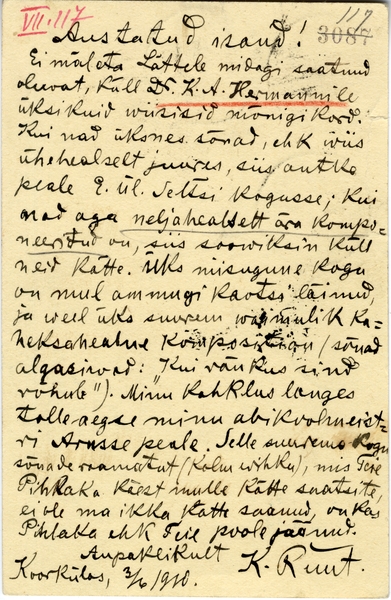 VII. 117
117
3087
Austatud isand!
Ei mäleta Lättele midagi saatnud
oluvat, küll Dr. K. A. Hermannile
üksikuid wiisisid mõnigi kord.
Kui nad üksnes sõnad, ehk wiis
ühehealselt juures, siis
peale E. Ül. Seltsi kogusse; kui
nad aga neljahealselt ära kompo-
neeritud on, siis soowiksin küll
neid kätte. Üks niisugune kogu
on mul ammugi kaotsi läinud,
ja weel üks suurem waimulik ka-
heksahealne komposition (sõnad
algasiwad: "Kui ränkus sind
rõhub"). Minu kahtlus langes
tolleaegse minu abikoolmeist-
ri Arusse peale. Selle suurema kogu
sõnade raamatut (kolm wihku), mis Teie
Pihlaka käest mulle kätte saatsite,
ei ole ma ikka kätte saanud, on kas
Pihlaka ehk Teie poole jäänud.
Aupaklikult
K. Ruut.
Koorkülas, 3/6 1910.